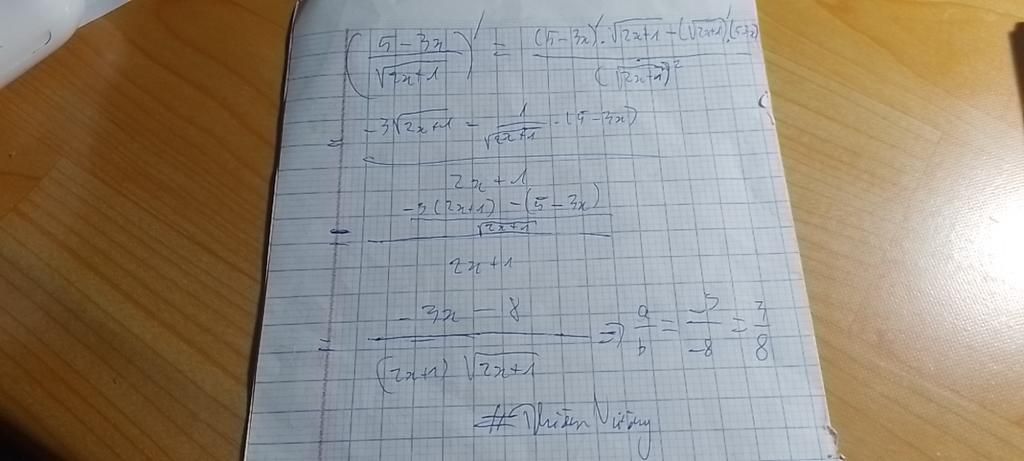 (\frac{5-3x}{\sqrt{2x+1}})' = \frac{(5-3x)'.\sqrt{2x+1}-(\sqrt{2x+1})'.(5-3x)}{(\sqrt{2x+1})^2}
= \frac{-3\sqrt{2x+1}-\frac{1}{\sqrt{2x+1}}.(5-3x)}{2x+1}
= \frac{\frac{-3(2x+1)-(5-3x)}{\sqrt{2x+1}}}{2x+1}
= \frac{-3x-8}{(2x+1)\sqrt{2x+1}} => \frac{a}{b} = \frac{-3}{-8} = \frac{3}{8}